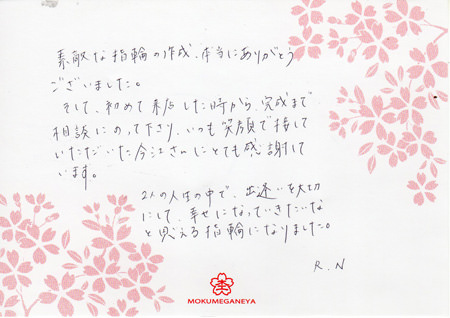 素敵な指輪の作成、本当にありがとう
ございました。
そして、初めて来店した時から、完成まで
相談にのって下さり、いつも笑顔で接して
いただいた今江さんにとても感謝して
います。
2人の人生の中で、出逢いを大切
にして、幸せになっていきたいな
と思える指輪になりました。
R.N
MOKUMEGANEYA